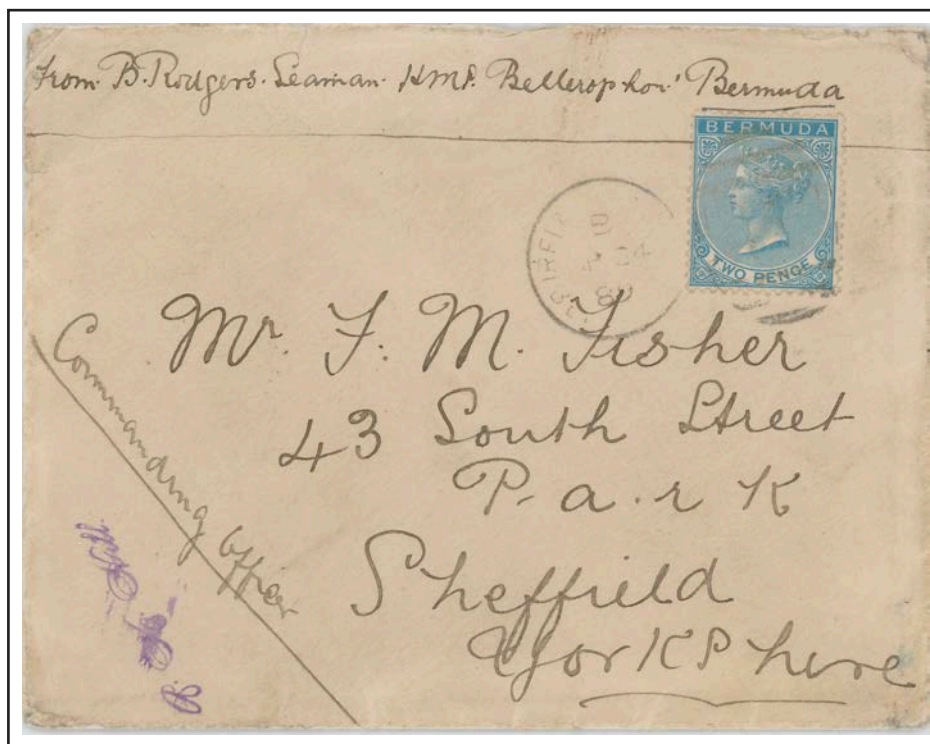 From B. Rodgers. Seaman. HMS. Bellerophon' Bermuda
BERMUDA
TWO PENCE
Mr. F. M. Fisher
43 South Street
P. a. r K
Sheffield
YorKShire
Commanding Officer